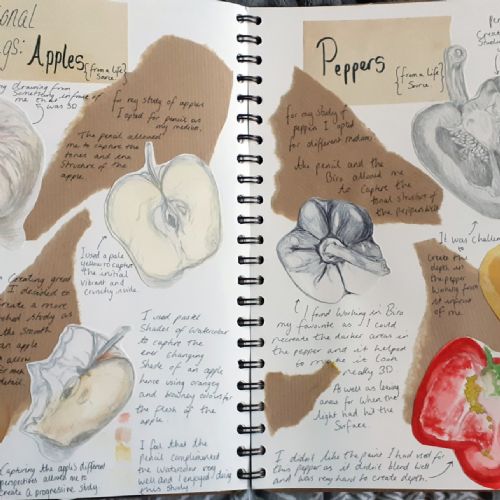 onal
gs: Apples {from a life Source}
drawing from
Something infront of
me that
was 3D
for my study of apples
I opted for pencil as
my medium.
The pencil allowed
me to capture the
tones and
Structure of the
apple.
I used a pale
yellow to capture
the initial
vibrant and
crunchy inside.
creating
I decided to
create a more
study as
the smooth
an apple
allow
detail.
I used pastel
Shades of watercolor
to capture
the ever changing
Shade of an apple
hence using orangey
and browney colours for
the flesh of the
apple.
I feel that the
pencil complimented
the watercolor very
well and I enjoyed doing
this study!
Capturing the apple's different
perspectives allowed me to
create a progressive study.
Peppers {from a life Source}
for my study of
peppers I opted
for different mediums.
the pencil and the
Biro allowed me
to capture the
tonal structure of
the pepper
It was challen
to create the
depth in
the pepper
working from
it infront
of me.
I found working in Biro
my favourite as I could
recreate the darker areas in
the pepper and it helped
to make it look
really 3D
As well as leaving
areas for when the
light had hit the
Surface.
I didn't like the pens I had used for
this pepper as it didn't blend well
and was very hard to create depth.